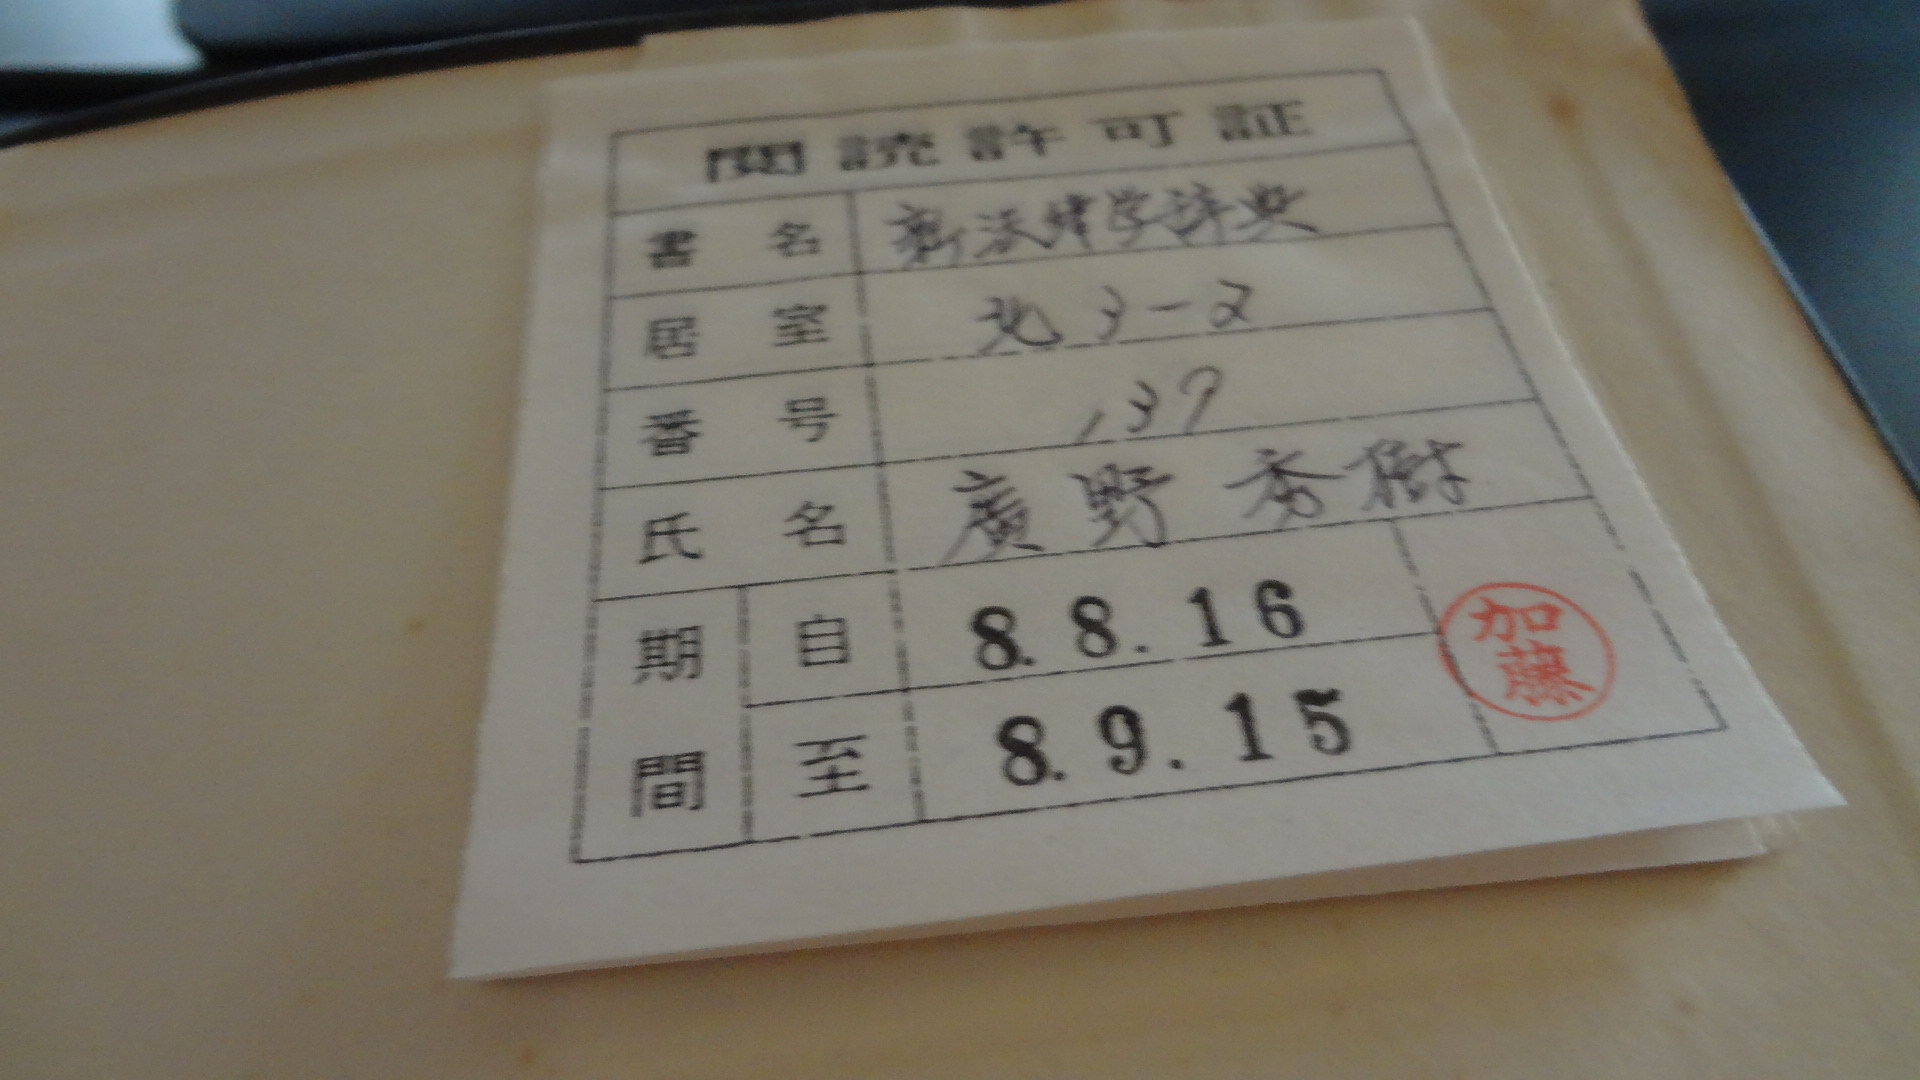 閲読許可証
書名 新法律学辞典
居室 北3-2
番号 137
氏名 廣野秀樹
期間 自 8.8.16
至 8.9.15
加藤